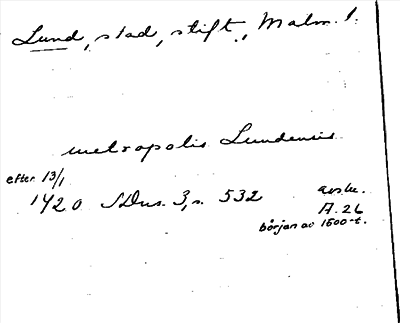 Lund, stad, stift, Malm. l.
metropolis Lundensis
efter 13/1
1420 SDns. 3, s. 532 avskr.
A. 26
början av 1500-t.